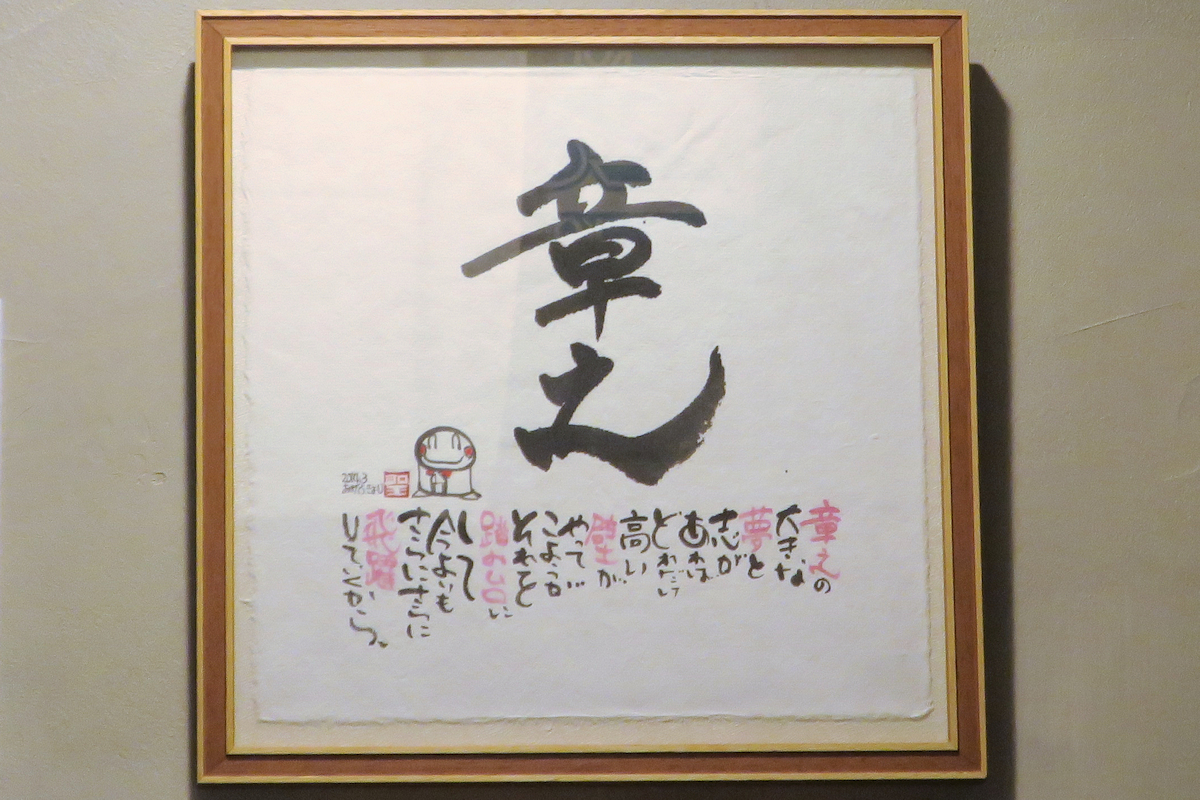 章之
章之の
大きな
夢と
志が
あれば
どれだけ
高い
壁が
やって
こようが
それを
踏み台に
して
今よりも
さらにさらに
飛躍
していくから。
聖